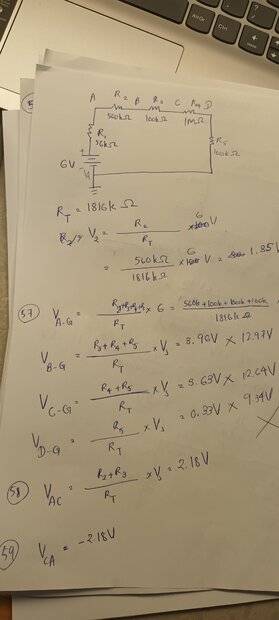 A R₂ B R₃ C R₄ D
560kΩ 100kΩ 1MΩ
R₁
56kΩ
R₅
100kΩ
6V
R_T = 1816k Ω
V₂ = R₂ / R_T × 6 V
= 560kΩ / 1816kΩ × 6 V = 1.85V
57) V_A-G = R₂+R₃+R₄+R₅ / R_T × 6 = 560k+100k+1000k+100k / 1816k
V_B-G = R₃+R₄+R₅ / R_T × Vs = 3.96V × 12.97V
V_C-G = R₄+R₅ / R_T × Vs = 3.63V × 12.64V
V_D-G = R₅ / R_T × Vs = 0.33V × 9.34V
58) V_AC = R₂+R₃ / R_T × Vs = 2.18V
59) V_CA = -2.18V